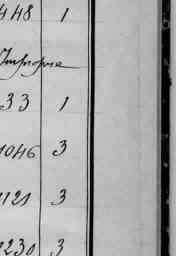 448 1
Impropre
33 1
1046 3
1121 3
1230 3